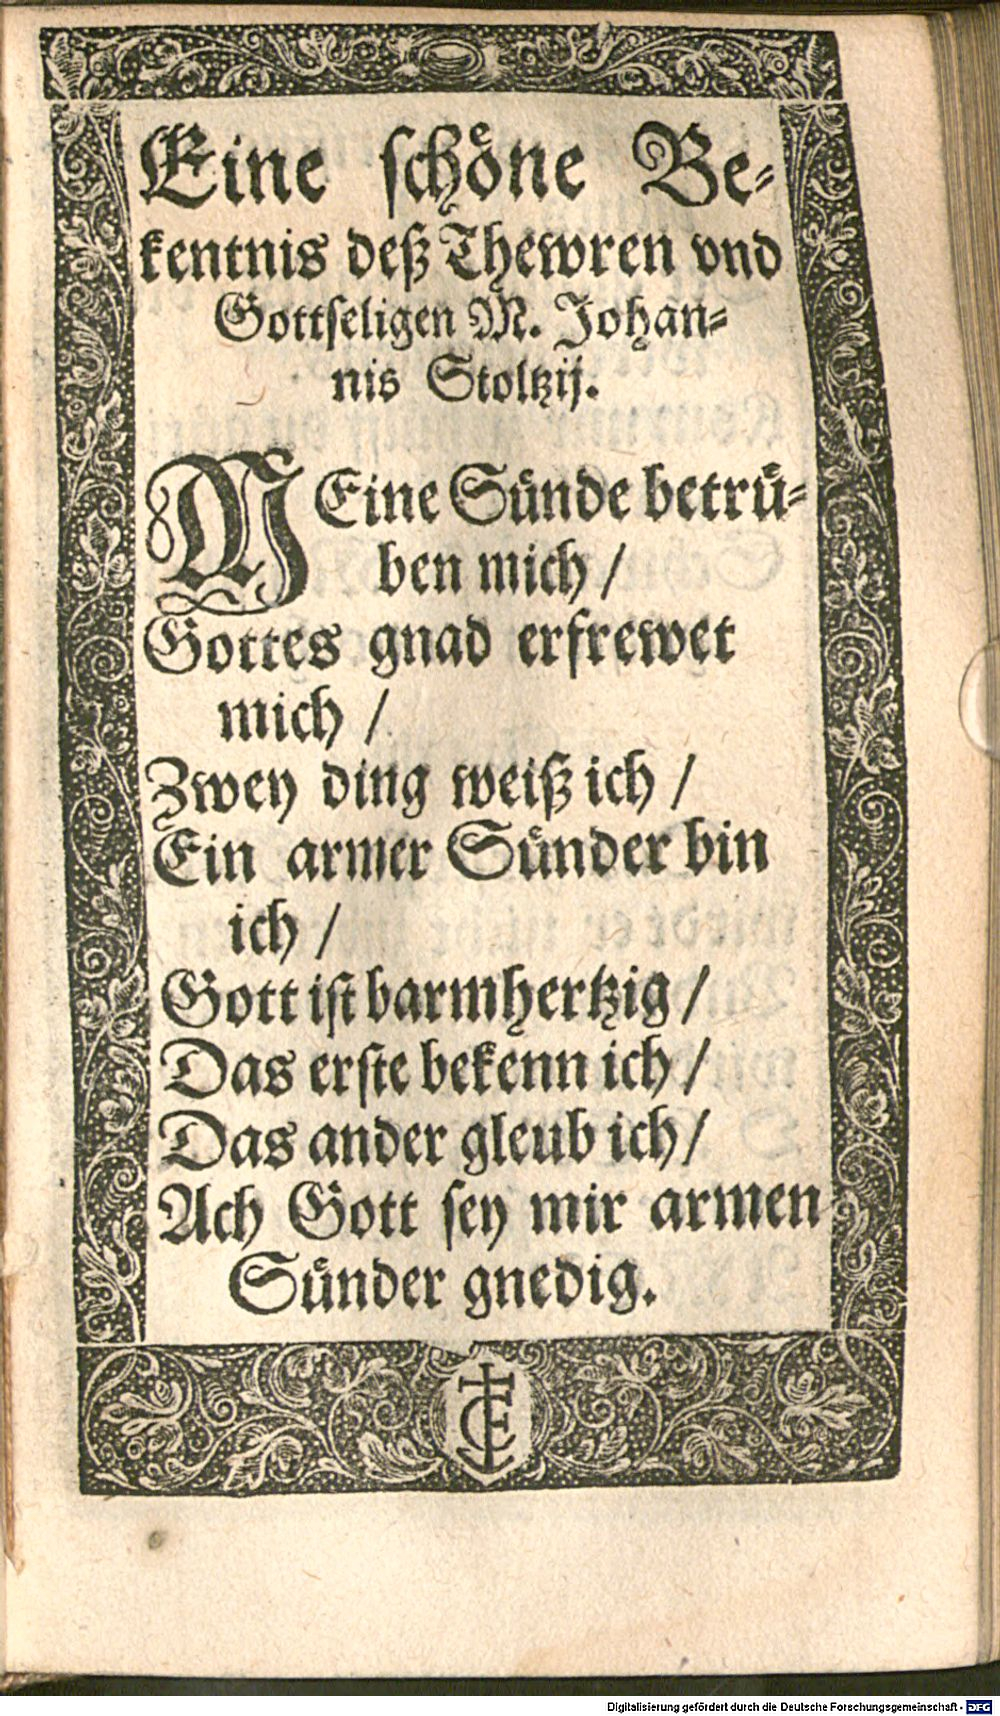 Eine schoͤne Be-
kentnis deß Thewren vnd
Gottseligen M. Johan-
nis Stoltzij.
MEine Suͤnde betruͤ-
ben mich /
Gottes gnad erfrewet
mich /
Zwey ding weiß ich /
Ein armer Suͤnder bin
ich /
Gott ist barmhertzig /
Das erste bekenn ich /
Das ander gleub ich /
Ach Gott sey mir armen
Suͤnder gnedig.
Digitalisierung gefördert durch die Deutsche Forschungsgemeinschaft - DFG